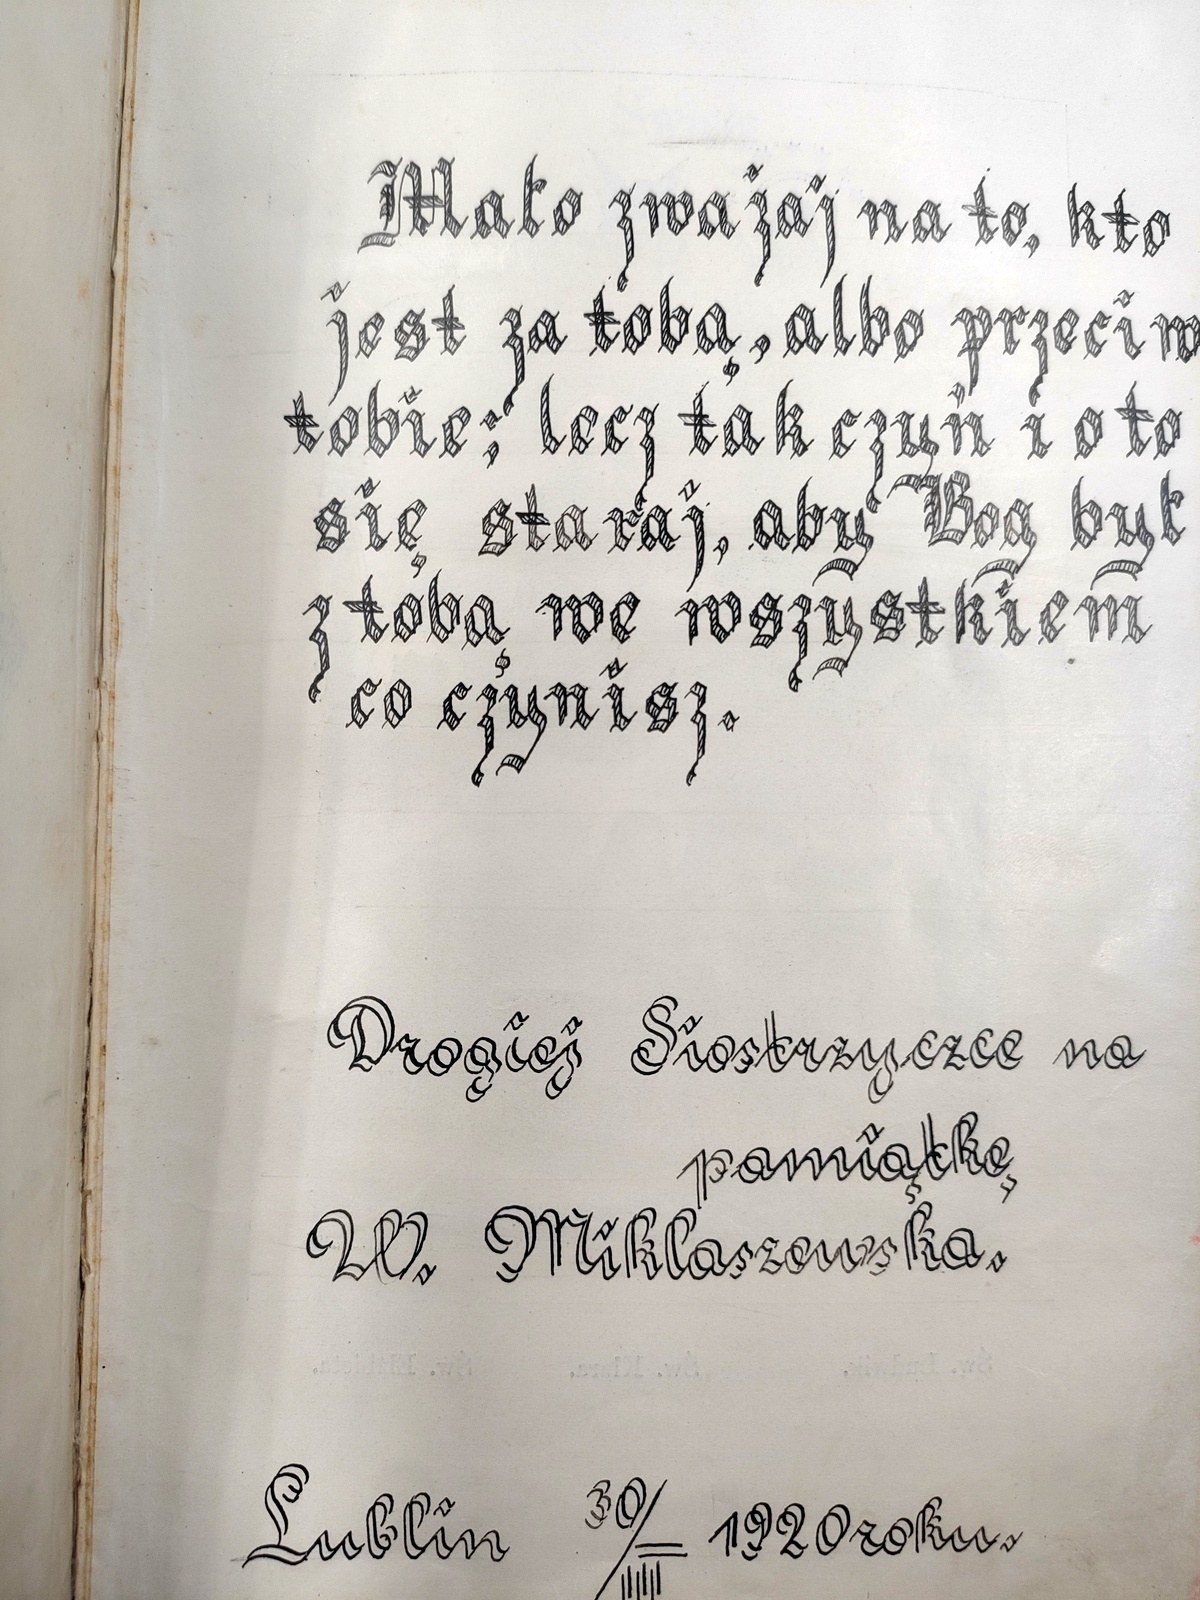 Mało zważaj na to, kto
jest za tobą, albo przeciw
tobie; lecz tak czyń i o to
się staraj, aby Bog był
z tobą we wszystkiem
co czynisz.
Drogiej Siostrzyczce na
pamiątkę
W. Miklaszewska.
Lublin 30/IIII 1920 roku.